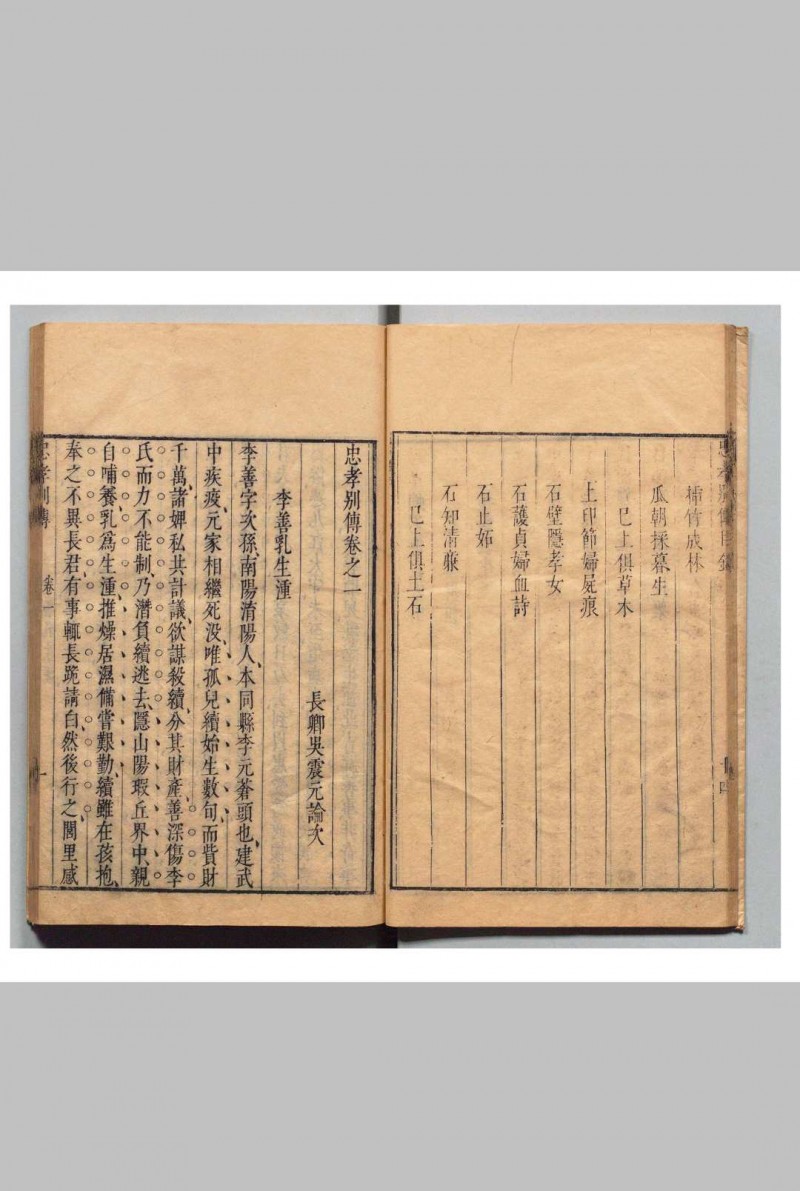 忠孝別傳目錄
補竹成林
瓜朝採暮生
已上俱草木
土印節婦屍痕
石壁隱孝女
石護貞婦血詩
石止妬
石知清廉
已上俱土石
忠孝別傳卷之一
長卿吳震元論次
李善乳生湩
李善字次孫、南陽淯陽人、本同縣李元蒼頭也、建武
中疾疫、元家相繼死沒、唯孤兒續始生數旬、而貲財
千萬、諸婢私共計議、欲謀殺續、分其財產、善深傷李
氏而力不能制、乃潛負續逃去、隱山陽瑕丘界中、親
自哺養、乳爲生湩、推燥居濕、備嘗艱勤、續雖在孩抱、
奉之不異長君、有事輒長跪請白、然後行之、閭里感
忠孝別傳 卷一 一